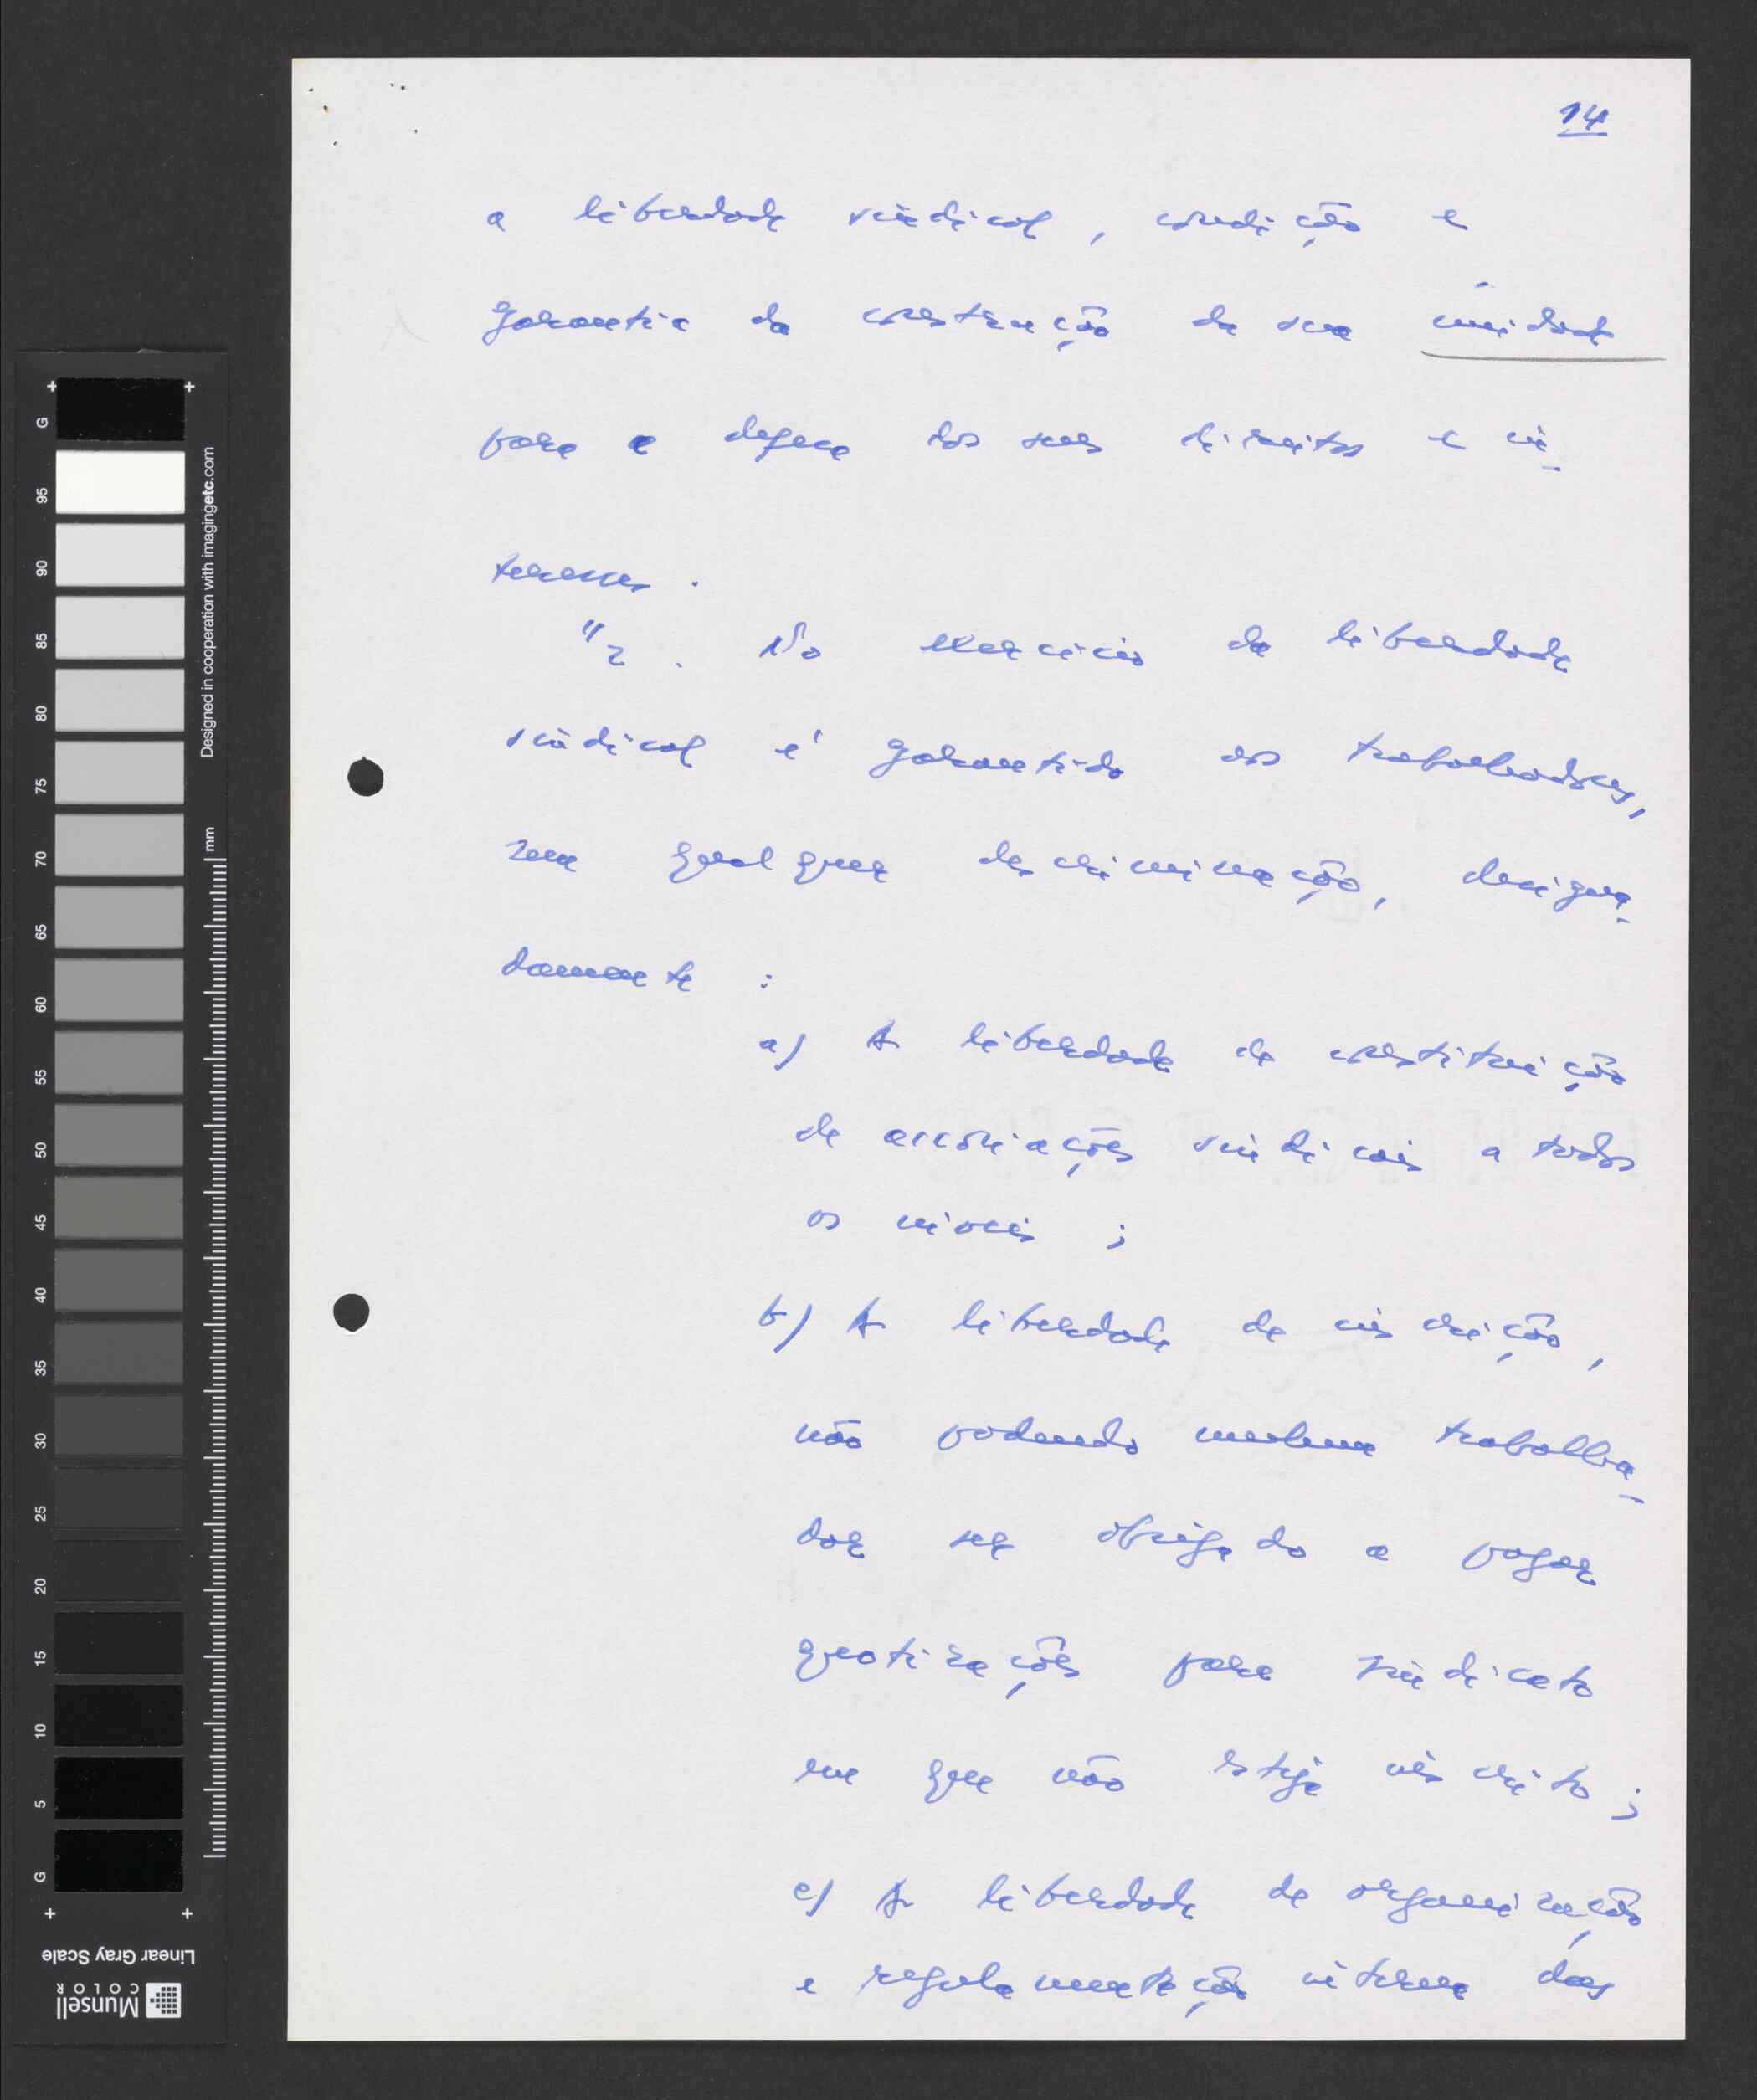 14
a liberdade sindical, condição e
garantia da construção da sua unidade
para a defesa dos seus direitos e in-
teresses.
"2. No exercício da liberdade
sindical é garantido aos trabalhadores,
sem qualquer descriminação, designa-
damente:
a) A liberdade de constituição
de associações sindicais a todos
os níveis;
b) A liberdade de inscrição,
não podendo nenhum trabalha-
dor ser obrigado a pagar
quotizações para sindicato
em que não esteja inscrito;
c) A liberdade de organização
e regulamentação interna das
Designed in cooperation with imagingetc.com
mm
G 95 90 85 80 75 70 65 60 55 50 45 40 35 30 25 20 15 10 5 G
Linear Gray Scale
Munsell
COLOR